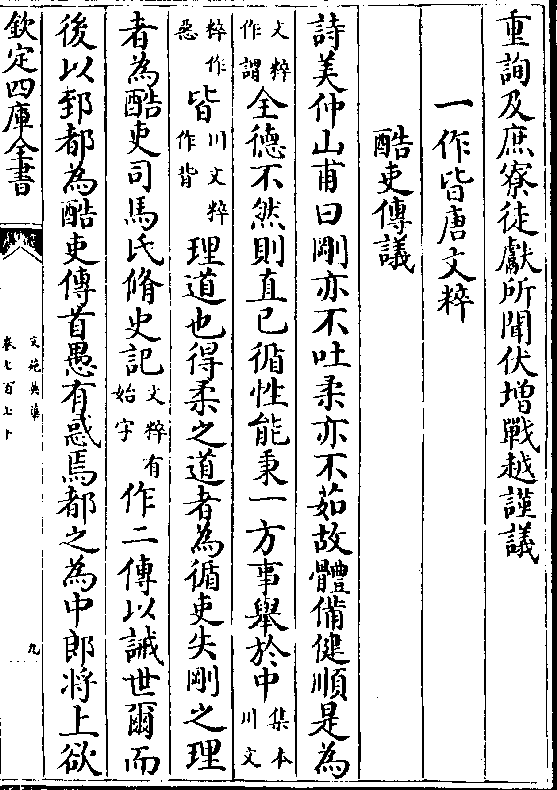 重詢及庶寮徒獻所聞伏增戰越謹議
一作皆唐文粹
酷吏傳議
詩美仲山甫曰剛亦不吐柔亦不茹故體備健順是為
文粹作謂全德不然則直已循性能秉一方事舉於中集本川文
粹作惡皆川文粹作背理道也得柔之道者為循吏失剛之理
者為酷吏司馬氏脩史記文粹有始字作二傳以誡世爾而
後以郅都為酷吏傳首愚有惑焉都之為中郎將上欲
欽定四庫全書
文苑英華
卷七百七十
九